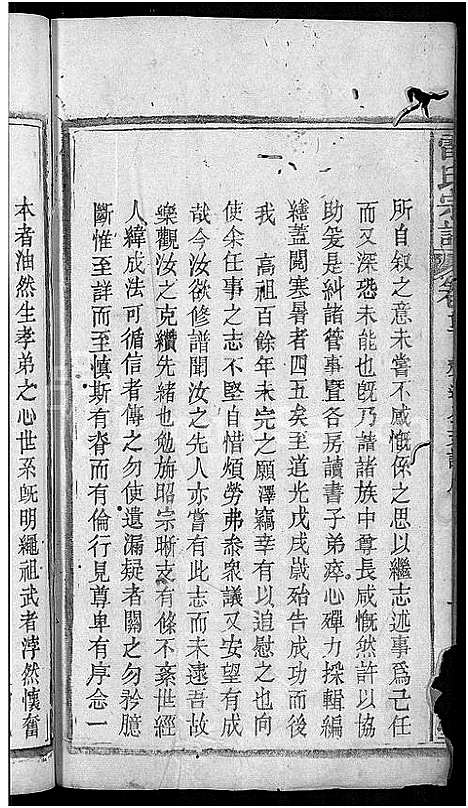 雷氏宗譜
所自叙之意未嘗不感慨係之思以繼志述事爲己任
而又深恐未能也旣乃諸諸族中尊長咸慨然許以協
助爰是糾諸管事暨各房讀書子弟瘁心殫力採輯編
繕蓋閱寒暑者四五矣至道光戊戌歲殆告成功而後
我　高祖百餘年未完之願澤竊幸有以追慰之也向
使余任事之志不堅自惜煩勞弗叅衆議又安望有成
哉今汝欲修譜聞汝之先人亦嘗有此志而未逮吾故
樂觀汝之克纘先緒也勉旃昭宗晰支有條不紊世經
人緯成法可循信者傳之勿使遺漏疑者闕之勿矜臆
斷惟至詳而至慎斯有脊而有倫行見尊卑有序念一
本者油然生孝弟之心世系旣明繩祖武者浡然慎奮